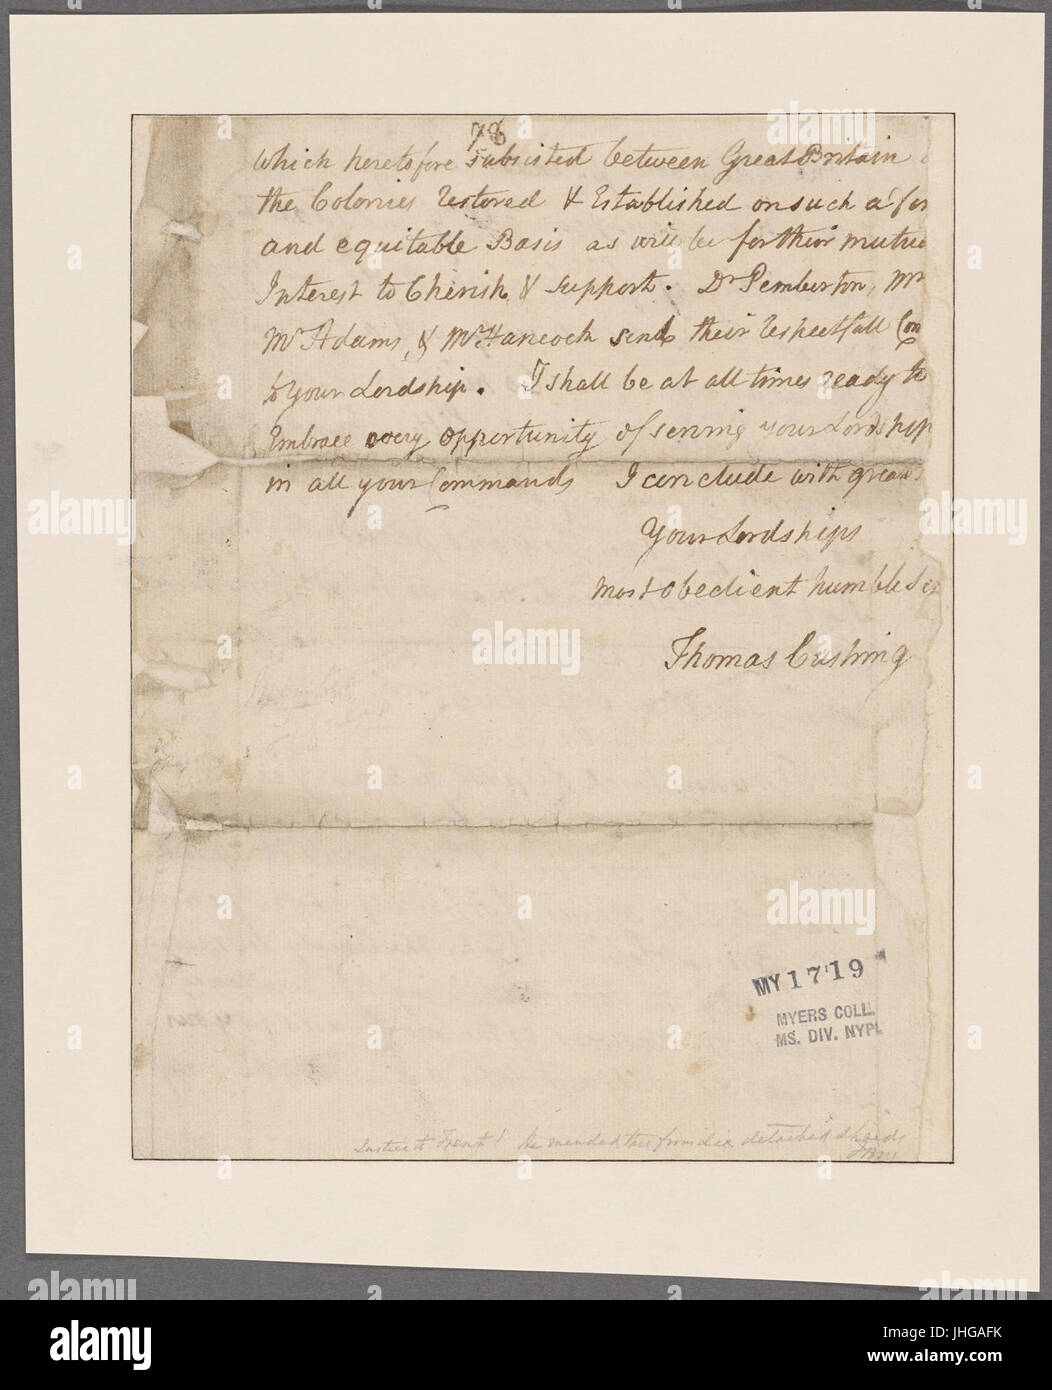 78
which heretofore subsisted between Great Britain
the Colonies restored & Established on such a
and equitable Basis as will be for their mutu
Interest to Cherish & support. Dr Pemberton, Mr
Mr Adams, & Mr Hancock send their respectfull Com
to your Lordship. I shall be at all times ready to
Embrace every opportunity of serving your Lordship
in all your Commands I conclude with great
Your Lordships
most obedient humble Se
Thomas Cushing
MY 17'19
MYERS COLL.
MS. DIV. NYPL
Justice to Trent! He mended this from six detached shreds
alamy
Image ID: JHGAFK
www.alamy.com